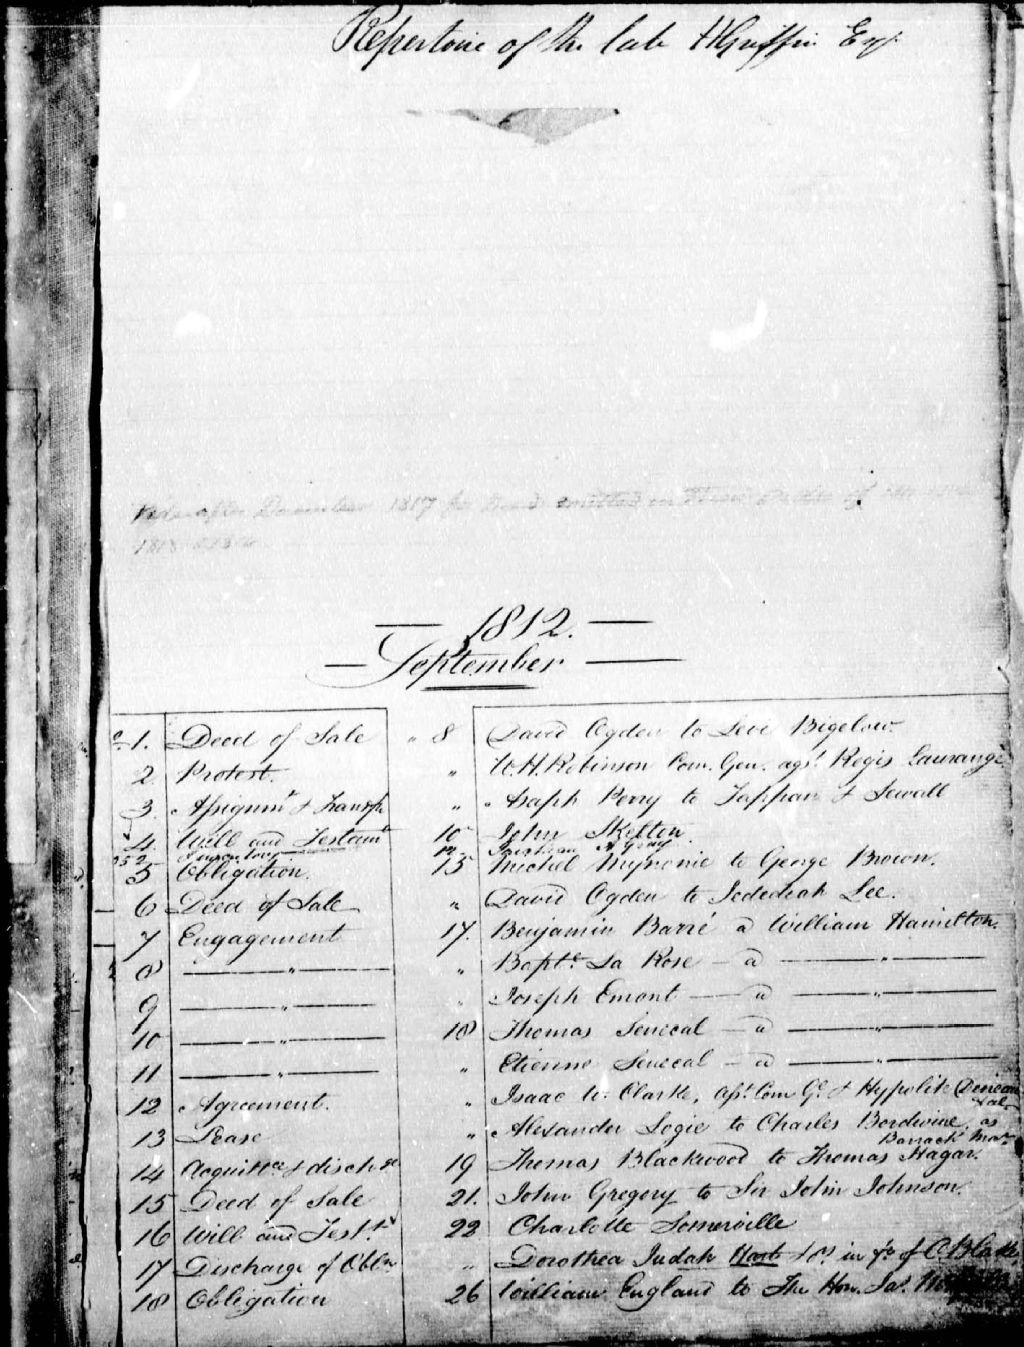 Repertoire of the late H Griffin Esqr.
December 1817 for Deeds omitted in
1812.
September
1. Deed of Sale " 8 David Ogden to Levi Bigelow.
2 Protest. " W. H. Robinson Com. Gen. agst. Regis Laurange
3. Assignmt. & Transfr. " Asaph Perry to Tappan & Sewall
4. Will and Testamt. 10 John Skelton.
Inventory 12 A Gray
5 Obligation. 15 Michel to George Brown.
6 Deed of Sale " David Ogden to Jedediah Lee.
7 Engagement 17. Benjamin Barré a William Hamilton.
8 — " — " Bapte. La Rose — a — " —
9 — " — " Joseph Emont — a — " —
10 — " — 18 Thomas Senecal — a — " —
11 — " — " Etienne Senecal — a — " —
12 Agreement. " Isaac W. Clarke, asst. Com Gl. & Hypolite
& al.
13 Lease " Alexander Logie to Charles Bordwine, as
Barrack
14 Acquitce. & disch 19 Thomas Blackwood to Thomas Hagar.
15 Deed of Sale 21. John Gregory to Sir John Johnson.
16 Will and Testt. 22 Charlotte Somerville
17 Discharge of Obln " Dorothea Judah Hart in of C. Blake
18 Obligation 26 William England to The Hon. Jas.